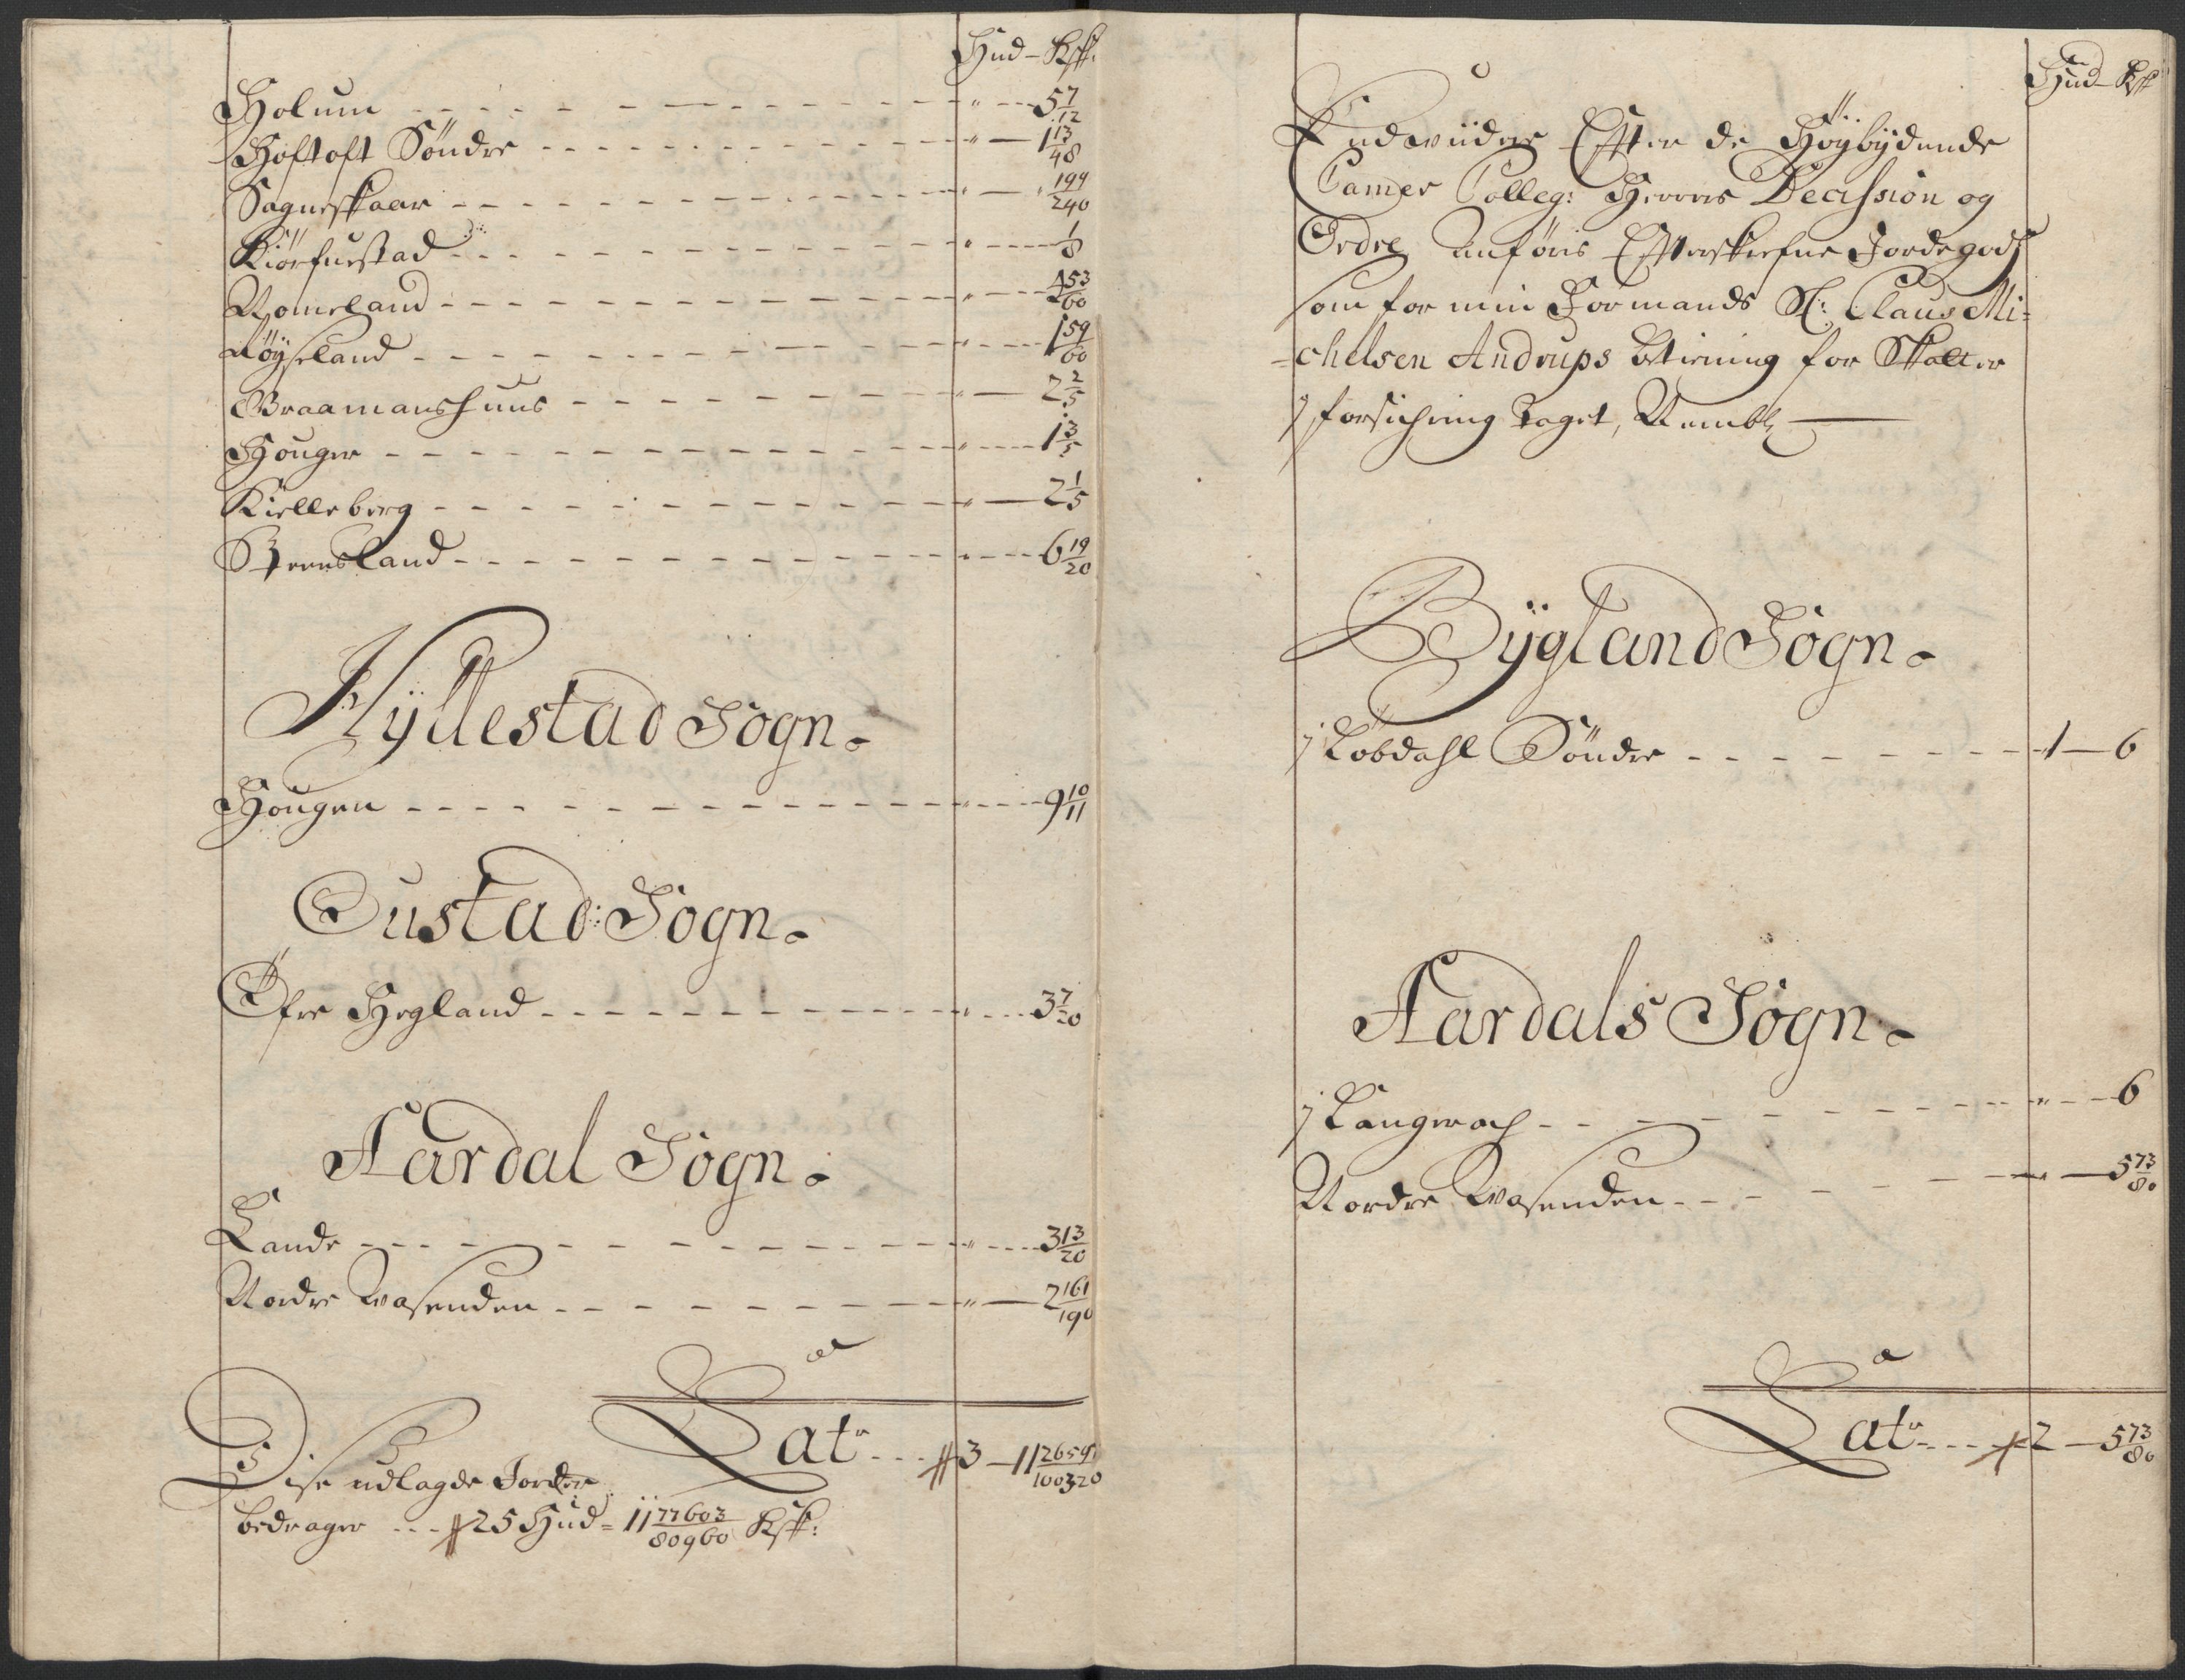 Hud – Ksk:
Holum - - - " - 5 7/12
Hoftoft Söndre - - - " - 1 13/48
Sagneskaar - - - " - 199/240
- - - " - 1/8
Romeland - - - " - 53/60
Röyseland - - - " - 1 59/60
Braamanshuus - - - " - 2 2/5
Houger - - - " - 1 3/5
Kielleberg - - - " - 2 1/5
Steensland - - - " - 6 19/20
Hyllestad Sogn.
Hougen - - - " - 9 10/11
Oustad: Sogn.
Öfre Hegland - - - " - 3 7/20
Aardal Sogn.
Lande - - - " - 3 13/20
Nordre Wasenden - - - " - 2 161/190
Lat.r - - - 3 – 11 /100320
Disse udlagde Jorder
bedrager - - - 25 Hud = 11 77603/80960 Ksk:
Hud – Ksk
Endwiidere Effter de Höybydende
Camer Colleg: Herrers Decission og
Ordre Anföris Effterskrefne Jordegods
som for min Formands Sl: Claus Mi=
=chelsen Andrups betiening for Skatter
j forsichring taget, Nembl:
Bÿgland Sogn.
j Löbdahl Söndre - - - 1 – 6
Aardals Sogn.
j Langerach - - - " - 6
Nordre Wasenden - - - " - 5 73/80
Lat.r - - - 2 – 5 73/80